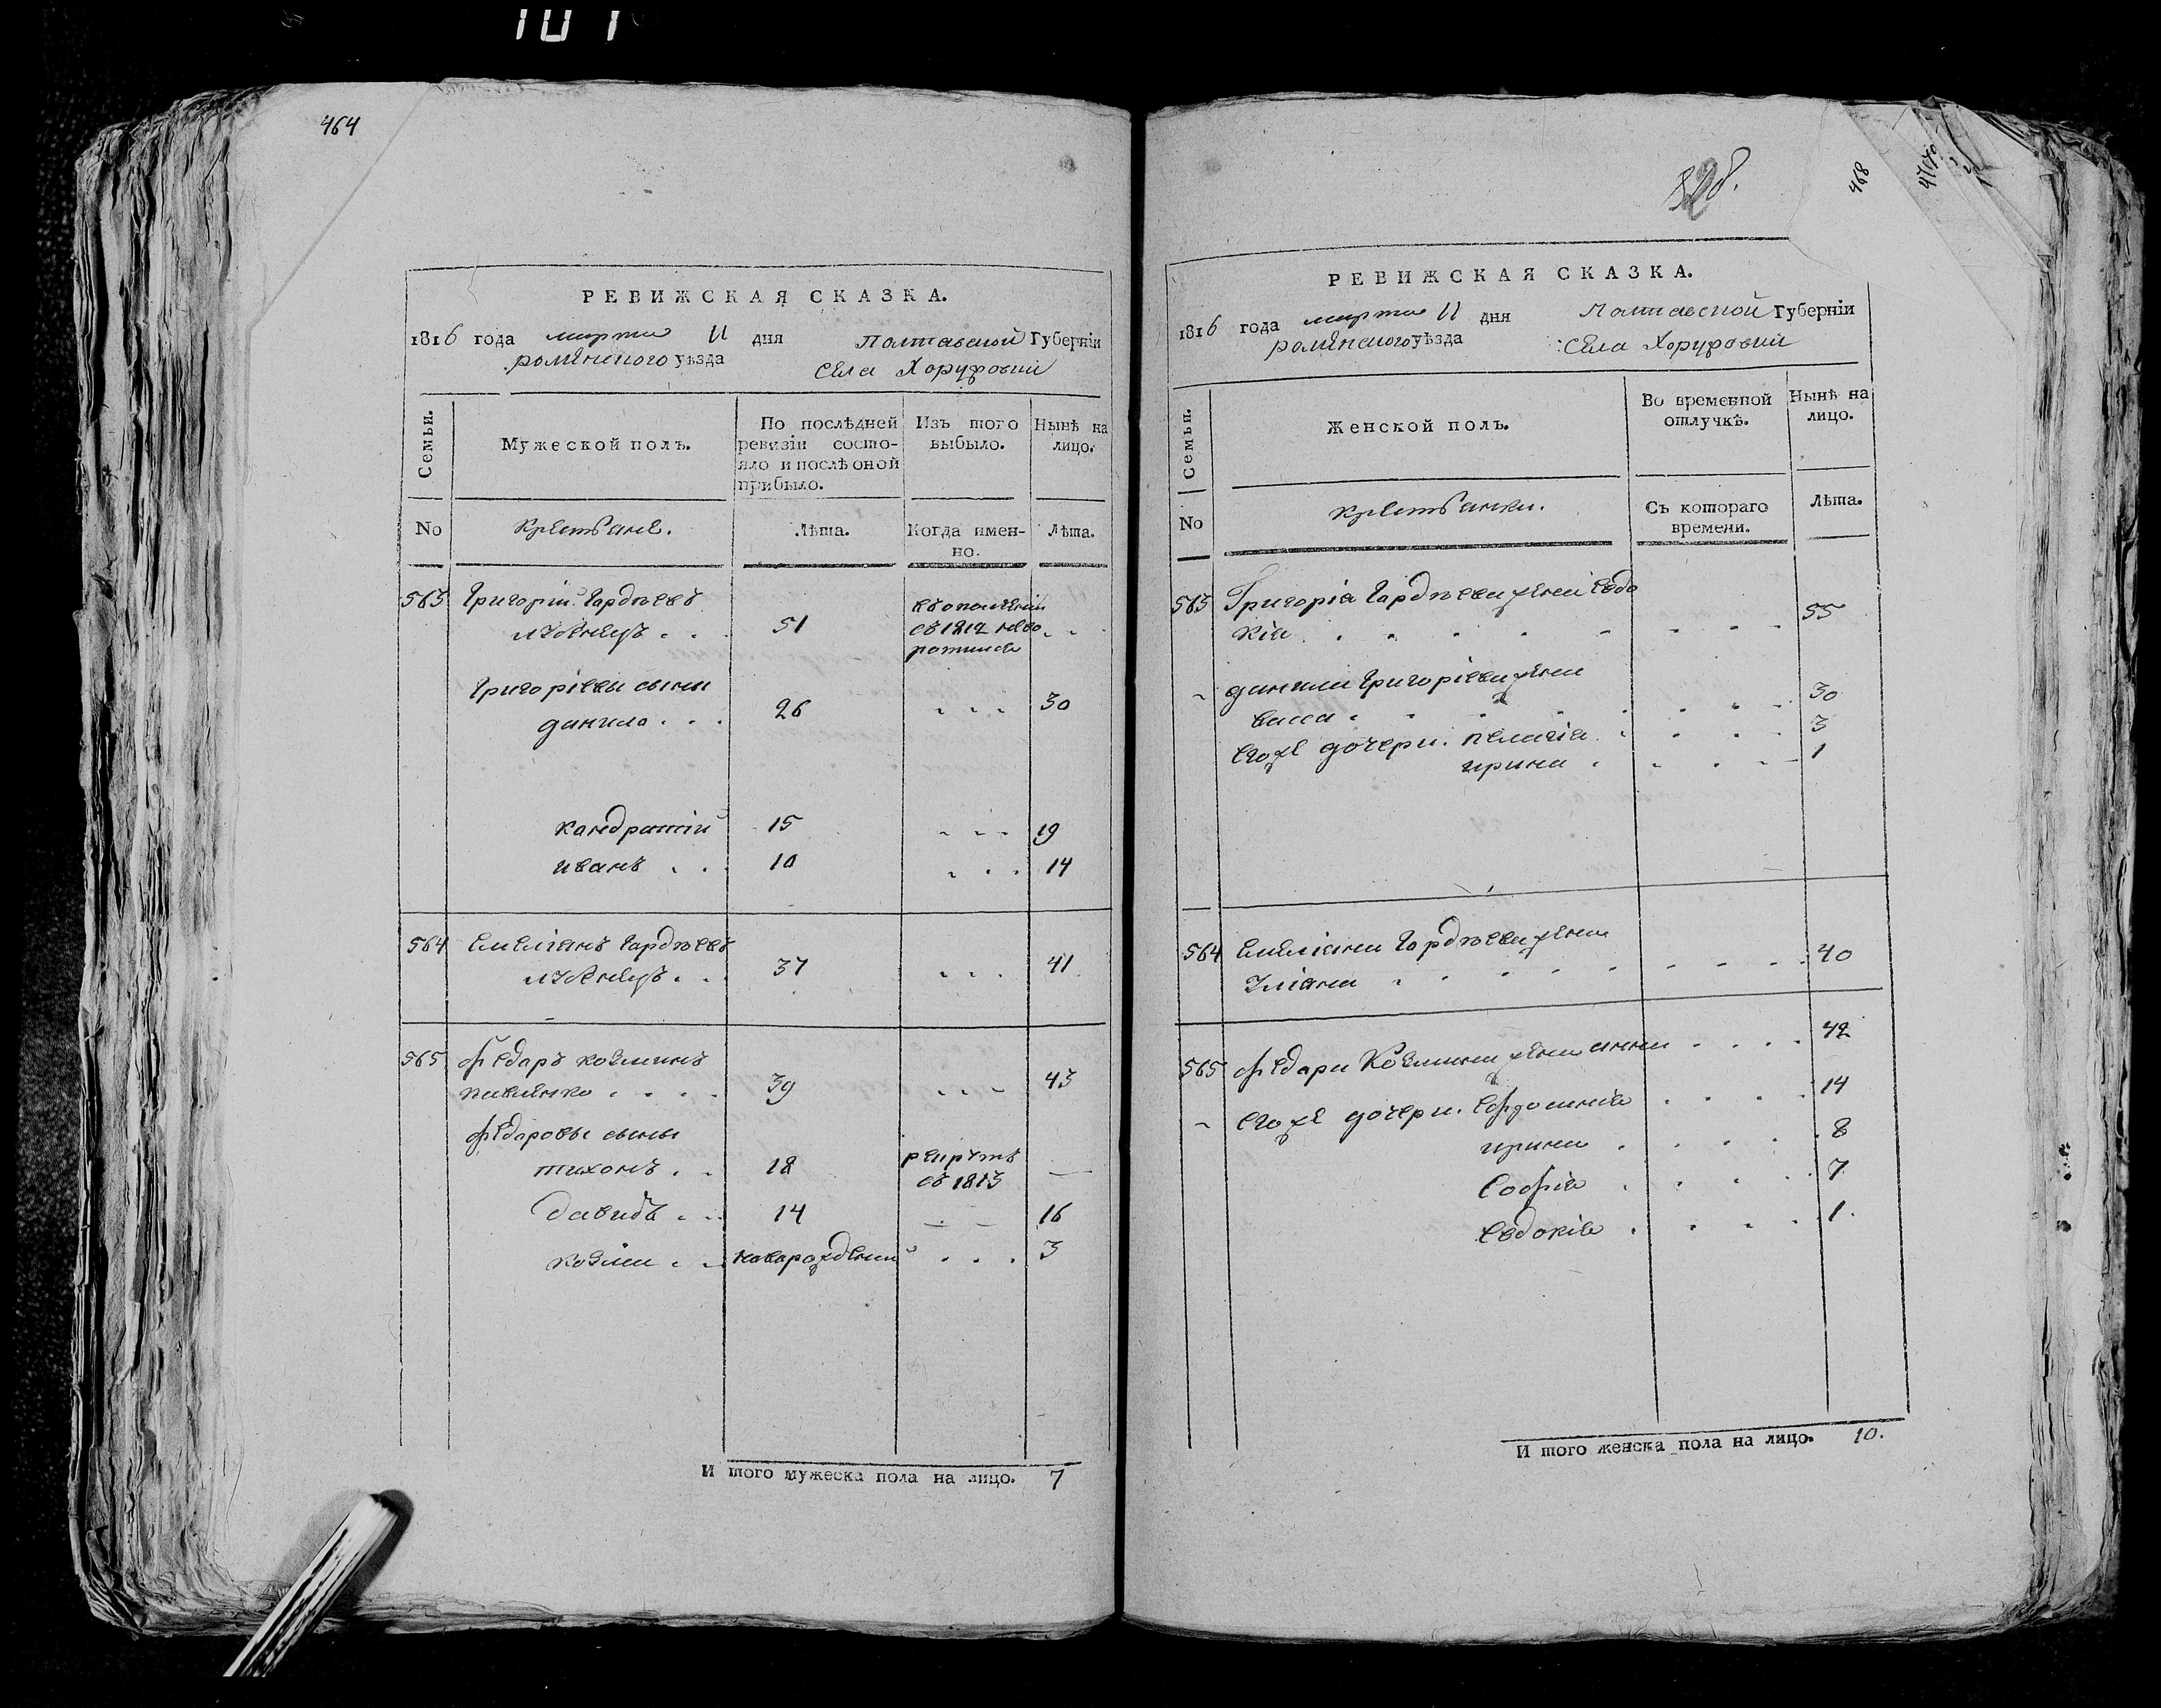 101
464
РЕВИЖСКАЯ СКАЗКА.
1816 года марта 11 дня Полтавской Губерніи
роменского уѣзда Села Хоружовки
Семьи.
Мужеской полъ.
По послѣдней ревизіи состо-
яло и послѣ оной прибыло.
Изъ того выбыло.
Ныне на лицо.
No
крестьяне.
Лѣта.
Когда имен-
но.
Лѣта.
563 Григорій Гордѣевъ
51 въ ополченіи
съ 1812 нево
ротился
Григоріевы сыны
данило . . . 26 30
кандратій 15 19
иванъ . . 10 14
564 емеліанъ Гордѣевъ
37 41
565 федаръ козминъ
39 43
федоровы сыны
тихонъ . . 18 рекрутъ
въ 1813 —
давидъ . . 14 16
козма . . новарожденный 3
И того мужеска пола на лицо. 7
328.
468
РЕВИЖСКАЯ СКАЗКА.
1816 года марта 11 дня Полтавской Губерніи
роменского уѣзда Села Хоружовки
Семьи.
Женской полъ.
Во временной отлучкѣ.
Нынѣ на лицо.
No
крестьянки.
Съ котораго времени.
Лѣта.
563 Григоріа Гордѣева жена евдо
кіа 55
данила Григоріева жена
васса 30
егоже дочери. пелагіа 3
ирина 1
564 емеліана Гордѣева жена
уліана 40
565 федара Козмина жена анна 42
егоже дочери. ефросиніа 14
ирина 8
софіа 7
евдокіа 1.
И того женска пола на лицо. 10.